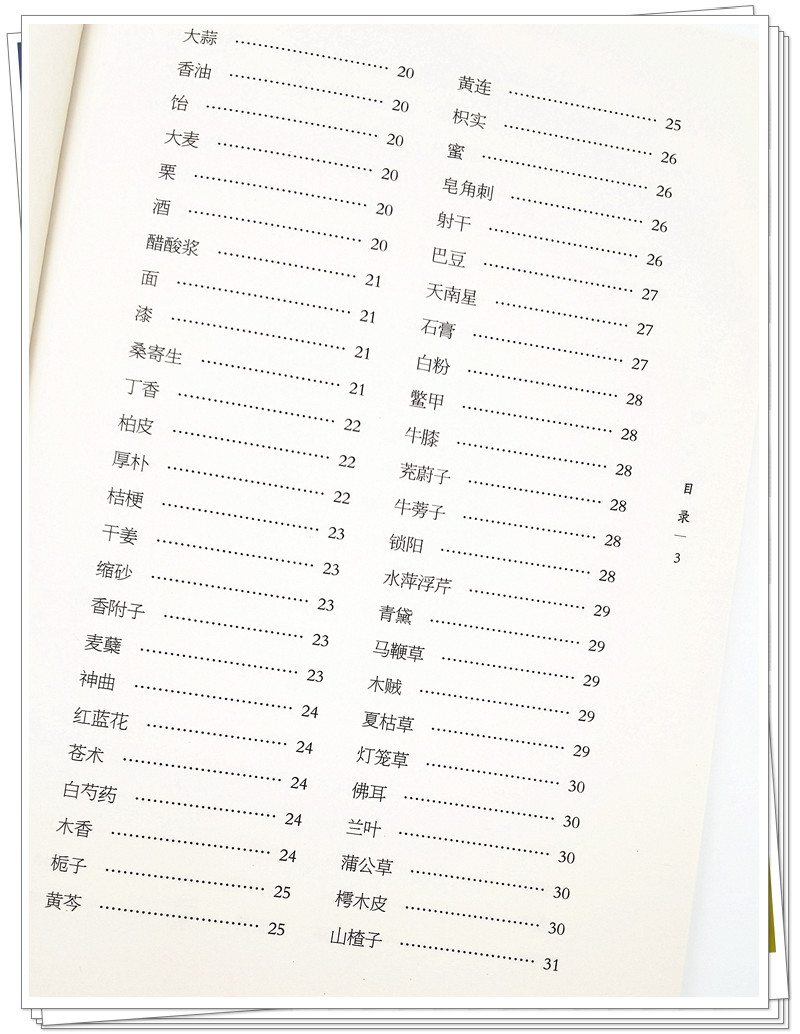 大蒜 …… 20
香油 …… 20
饴 …… 20
大麦 …… 20
栗 …… 20
酒 …… 20
醋酸浆 …… 21
面 …… 21
漆 …… 21
桑寄生 …… 21
丁香 …… 22
柏皮 …… 22
厚朴 …… 22
桔梗 …… 23
干姜 …… 23
缩砂 …… 23
香附子 …… 23
麦蘖 …… 23
神曲 …… 24
红蓝花 …… 24
苍术 …… 24
白芍药 …… 24
木香 …… 24
栀子 …… 25
黄芩 …… 25
黄连 …… 25
枳实 …… 26
蜜 …… 26
皂角刺 …… 26
射干 …… 26
巴豆 …… 27
天南星 …… 27
石膏 …… 27
白粉 …… 28
鳖甲 …… 28
牛膝 …… 28
茺蔚子 …… 28
牛蒡子 …… 28
锁阳 …… 28
水萍浮芹 …… 29
青黛 …… 29
马鞭草 …… 29
木贼 …… 29
夏枯草 …… 29
灯笼草 …… 30
佛耳 …… 30
兰叶 …… 30
蒲公草 …… 30
樗木皮 …… 30
山楂子 …… 31
目录
3